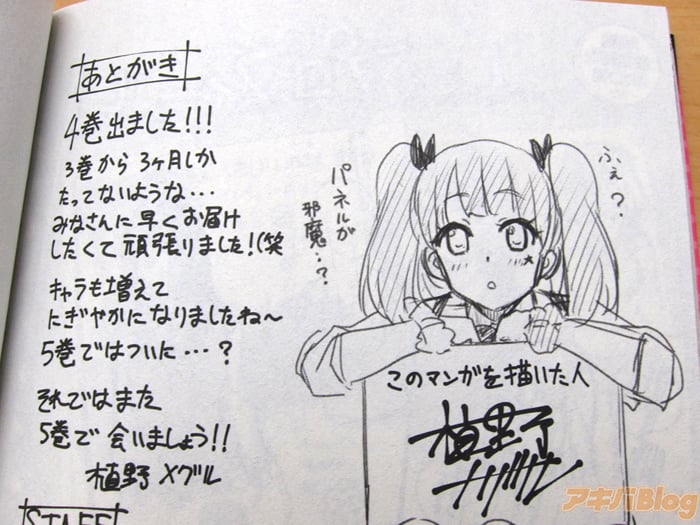 あとがき
4巻出ました!!!
3巻から 3ヶ月しか
たってないような・・・
みなさんに 早くお届け
したくて 頑張りました!(笑
キャラも増えて
にぎやかになりましたね〜
5巻ではついに・・・?
それではまた
5巻で 会いましょう!!
植野 メグル
STAFF
ふぇ?
パネルが
邪魔・・?
このマンガを描いた人
植野
メグル
アキバBlog